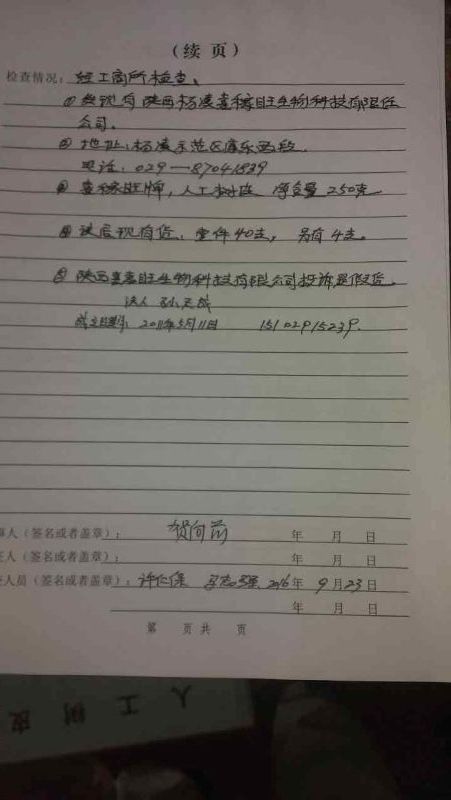 (续 页)
检查情况: 经工商所检查、
①发现有陕西杨凌喜稼旺生物科技有限责任
公司.
② 地址:杨凌示范区康乐西段.
电话:029—87041839
③ 喜稼旺牌, 人工树皮 净含量250克
④ 该店现有货、壹件40支, 另有4支.
⑤ 陕西喜稼旺生物科技有限公司投诉是假货.
法人 孙天战
成立日期: 2011年5月11日 15102915239.
事人(签名或者盖章): 贺向前 年 月 日
证人(签名或者盖章): 年 月 日
人员(签名或者盖章): 2016年 9月23日
年 月 日
第 页 共 页
人工树皮